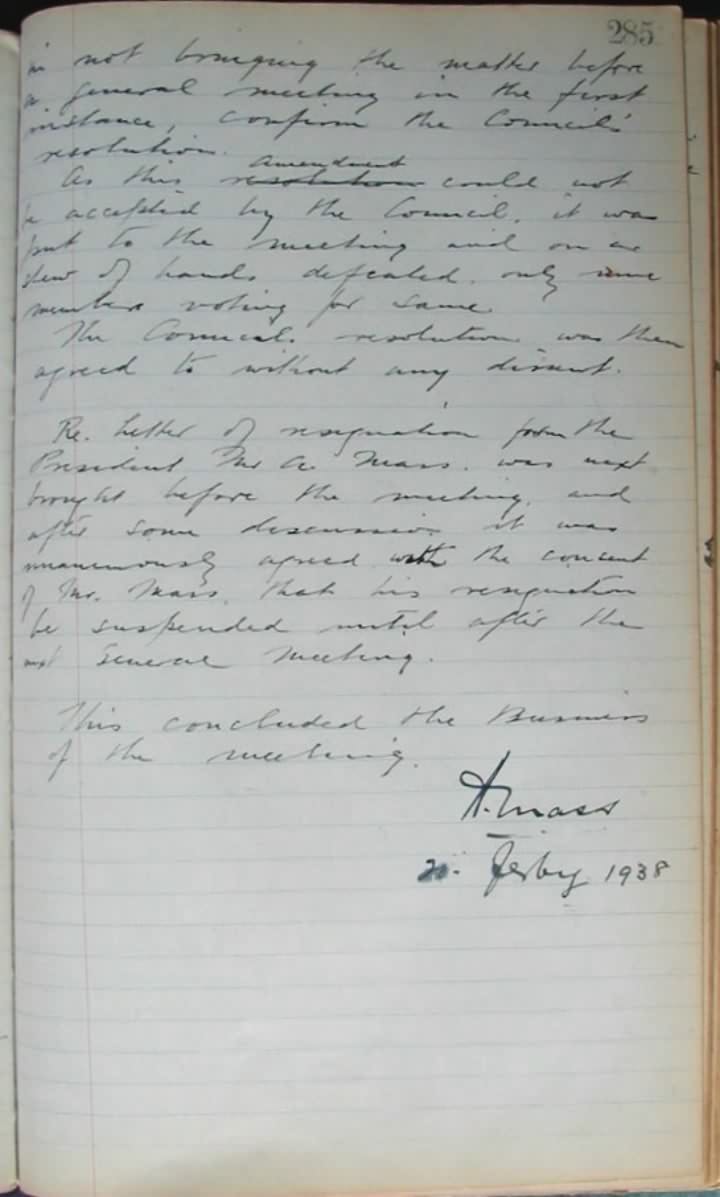 285
in not bringing the matter before
a general meeting in the first
instance, confirm the Council's
resolution.
Amendment
As this resolution could not
be accepted by the Council, it was
put to the meeting and on a
show of hands defeated, only nine
members voting for same.
The Council's resolution was then
agreed to without any dissent.
Re. Letter of resignation from the
President Mr A. Mass. was next
brought before the meeting, and
after some discussion it was
unanimously agreed with the consent
of Mr. Mass, that his resignation
be suspended until after the
next General Meeting.
This concluded the Business
of the meeting.
A. Mass
Feby 1938